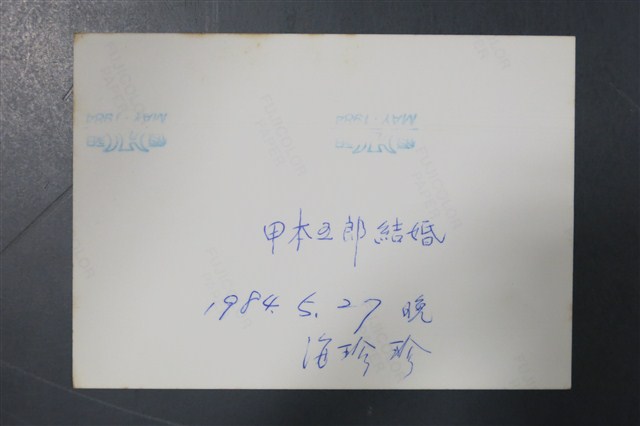 MAY. 1984
MAY. 1984
甲本五郎結婚
1984. 5. 27 晚
海珍珍